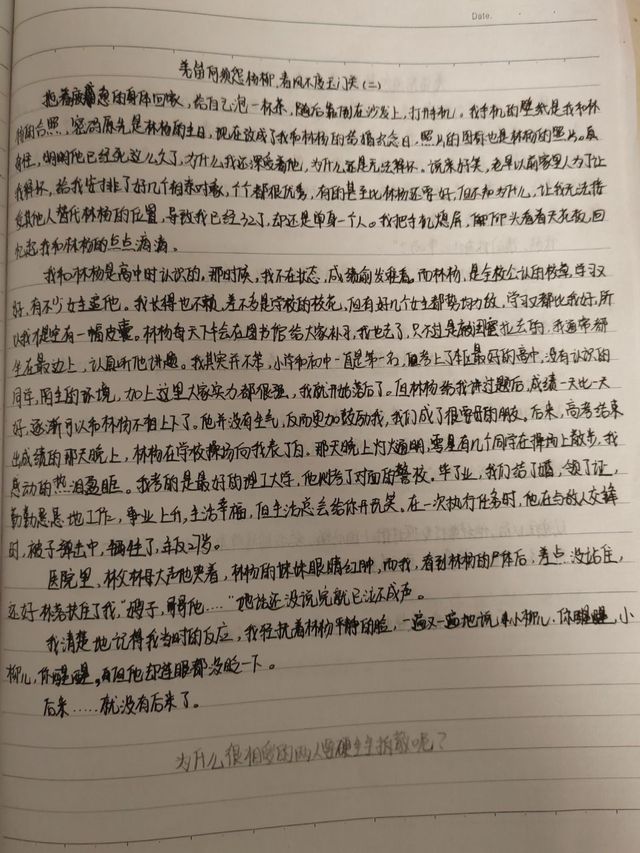 Date.
羌笛何须怨杨柳,春风不度玉门关(二)
拖着疲惫的身体回家,给自己泡一杯茶,随后靠倒在沙发上,打开手机。我手机的壁纸是我和林
杨的合照,密码原先是林杨的生日,现在改成了我和林杨的结婚纪念日,照片的图标也是林杨的照片。
奇怪,明明他已经死这么久了,为什么我还深爱着他,为什么还是无法释怀。说来好笑,老早以前家里人为了让
我释怀,给我安排了好几个相亲对象,个个都很优秀,有的甚至比林杨还要好,但不知为什么,让我无法接
受其他人替代林杨的位置,导致我已经32了,却还是单身一个人。我把手机熄屏,仰头看着天花板,回
忆起我和林杨的点点滴滴。
我和林杨是高中时认识的,那时候,我不在状态,成绩愈发难看。而林杨,是全校公认的校草,学习又
好,有不少女生追他。我长得也不赖,差不多是学校的校花,但有好几个女生都势均力敌,学习又都比我好,所
以我不但空有一幅皮囊。林杨每天下午会在图书馆给大家补习,我也去了,只不过是被闺蜜拉去的,我通常都
坐在最边上,认真听他讲题。我其实并不笨,小学和初中一直是第一名,但考上了本区最好的高中,没有认识的
同学,陌生的环境,加上这里大家实力都很强,我就开始落后了。但林杨给我讲过题后,成绩一天比一天
好,逐渐可以和林杨不相上下了。他并没有生气,反而更加鼓励我,我们成了很要好的朋友。后来,高考结束
出成绩的那天晚上,林杨在学校操场向我表了白。那天晚上灯火通明,零星有几个同学在操场上散步,我
感动的热泪盈眶。我考的是最好的理工大学,他则考了对面的警校。毕了业,我们结了婚,领了证,
勤勤恳恳地工作,事业上升,生活幸福,但生活总会给你开玩笑。在一次执行任务时,他在与敌人交锋
时,被子弹击中,牺牲了,年仅27岁。
医院里,林父林母大声地哭着,林杨的妹妹眼睛红肿,而我,看到林杨的尸体后,差点没站住,
还好林老扶住了我,“嫂子,哥哥他……”她话还没说完就已泣不成声。
我清楚地记得我当时的反应,我轻抚着林杨平静的脸,一遍又一遍地说:小柳儿,你醒醒,小
柳儿,你醒醒。但他却连眼都没眨一下。
后来……就没有后来了。
为什么很相爱的两人要硬生生拆散呢?